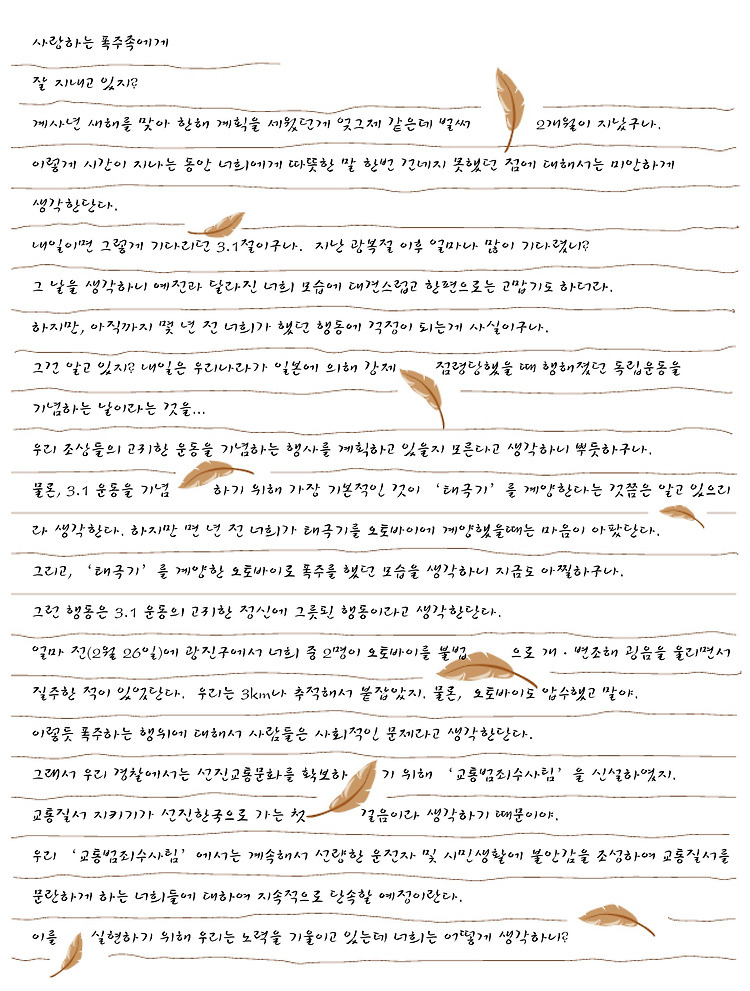 사랑하는 폭주족에게
잘 지내고 있지?
계사년 새해를 맞아 한해 계획을 세웠던게 엊그제 같은데 벌써 2개월이 지났구나.
이렇게 시간이 지나는 동안 너희에게 따뜻한 말 한번 건네지 못했던 점에 대해서는 미안하게
생각한단다.
내일이면 그렇게 기다리던 3.1절이구나. 지난 광복절 이후 얼마나 많이 기다렸니?
그 날을 생각하니 예전과 달라진 너희 모습에 대견스럽고 한편으로는 고맙기도 하더라.
하지만, 아직까지 몇 년 전 너희가 했던 행동에 걱정이 되는게 사실이구나.
그건 알고 있지? 내일은 우리나라가 일본에 의해 강제 점령당했을 때 행해졌던 독립운동을
기념하는 날이라는 것을...
우리 조상들의 고귀한 운동을 기념하는 행사를 계획하고 있을지 모른다고 생각하니 뿌듯하구나.
물론, 3.1 운동을 기념 하기 위해 가장 기본적인 것이 ‘태극기’를 게양한다는 것쯤은 알고 있으리
라 생각한다. 하지만 면 년 전 너희가 태극기를 오토바이에 게양했을때는 마음이 아팠단다.
그리고, ‘태극기’를 게양한 오토바이로 폭주를 했던 모습을 생각하니 지금도 아찔하구나.
그런 행동은 3.1 운동의 고귀한 정신에 그릇된 행동이라고 생각한단다.
얼마 전(2월 26일)에 광진구에서 너희 중 2명이 오토바이를 불법 으로 개·변조해 굉음을 울리면서
질주한 적이 있었단다. 우리는 3km나 추적해서 붙잡았지. 물론, 오토바이도 압수했고 말야.
이렇듯 폭주하는 행위에 대해서 사람들은 사회적인 문제라고 생각한단다.
그래서 우리 경찰에서는 선진교통문화를 확보하 기 위해 ‘교통범죄수사팀’을 신설하였지.
교통질서 지키기가 선진한국으로 가는 첫 걸음이라 생각하기 때문이야.
우리 ‘교통범죄수사팀’에서는 계속해서 선량한 운전자 및 시민생활에 불안감을 조성하여 교통질서를
문란하게 하는 너희들에 대하여 지속적으로 단속할 예정이란다.
이를 실현하기 위해 우리는 노력을 기울이고 있는데 너희는 어떻게 생각하니?